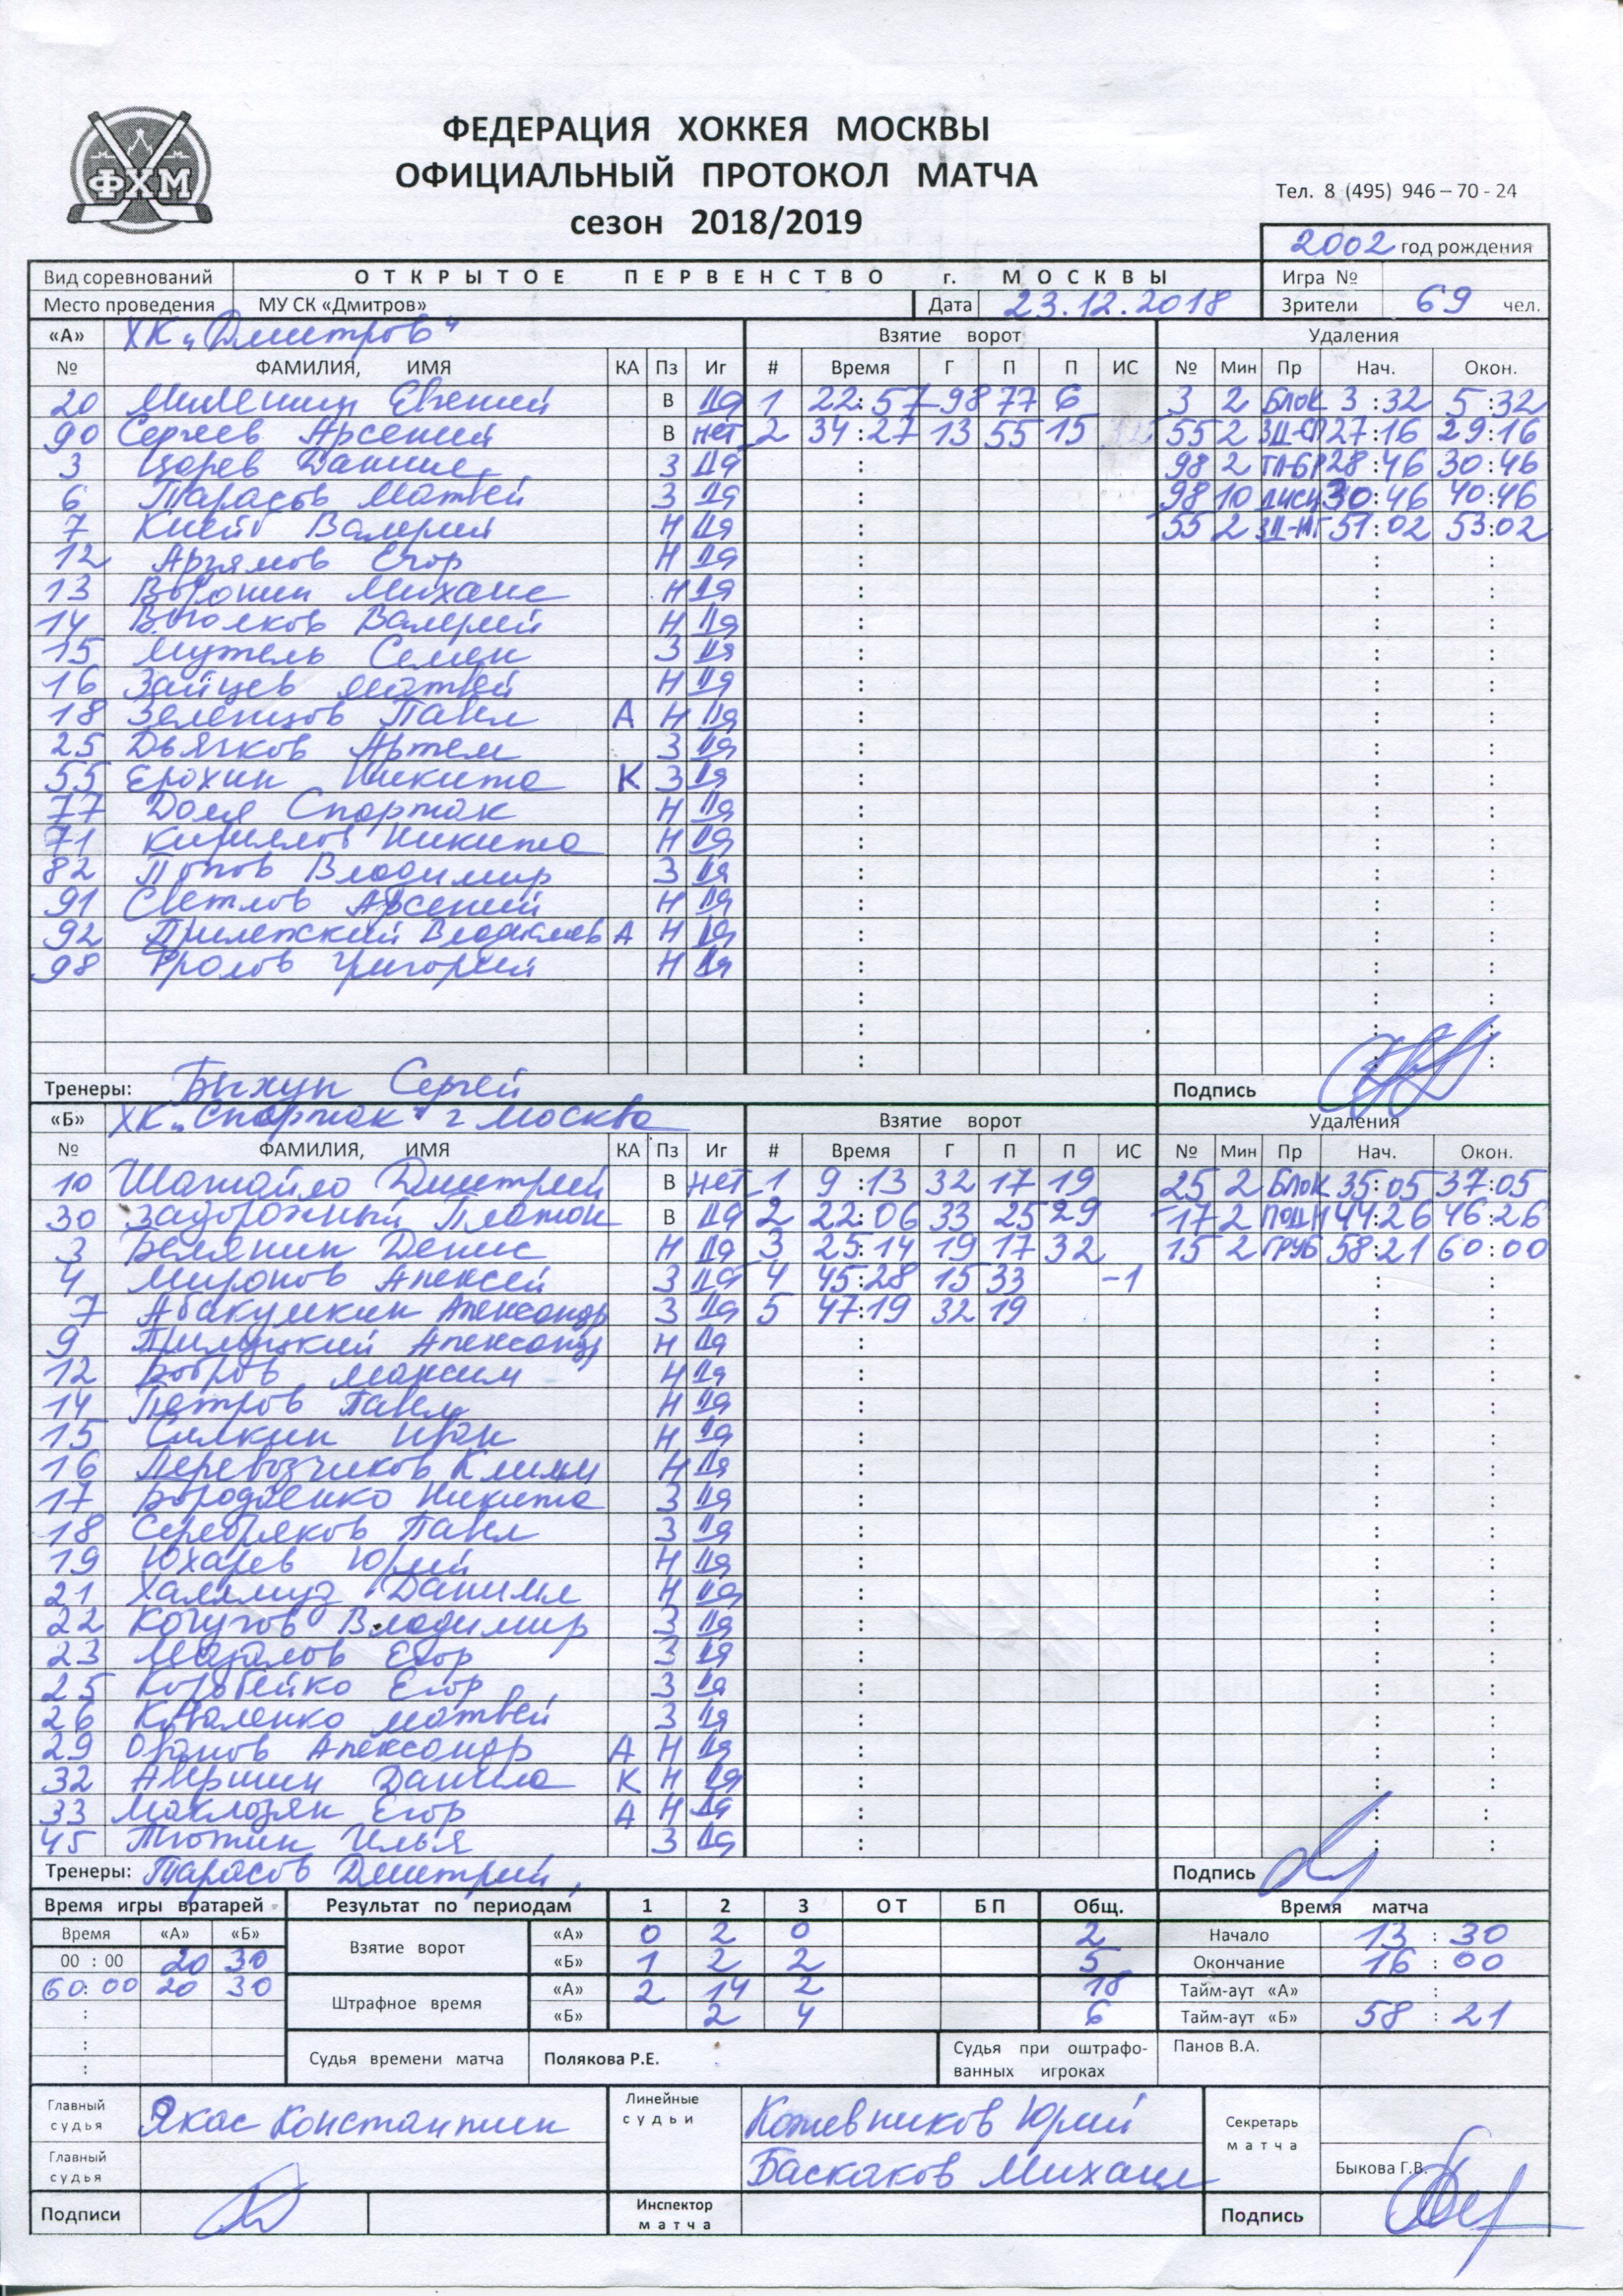 ФХМ
ФЕДЕРАЦИЯ ХОККЕЯ МОСКВЫ
ОФИЦИАЛЬНЫЙ ПРОТОКОЛ МАТЧА
сезон 2018/2019
Тел. 8 (495) 946 – 70 - 24
2002 год рождения
Вид соревнований ОТКРЫТОЕ ПЕРВЕНСТВО г. МОСКВЫ Игра №
Место проведения МУ СК «Дмитров» Дата 23.12.2018 Зрители 69 чел.
«А» ХК „Дмитров" Взятие ворот Удаления
№ ФАМИЛИЯ, ИМЯ КА Пз Иг # Время Г П П ИС № Мин Пр Нач. Окон.
20 Миленин Евгений В да 1 22:57 98 77 6 3 2 БЛОК 3:32 5:32
90 Сергеев Арсений В нет 2 34:27 13 55 15 55 2 27:16 29:16
3 Царев Даниил З да : 98 2 28:46 30:46
6 Тарасов Матвей З да : 98 10 дисц 30:46 40:46
7 Валерий Н да : 55 2 51:02 53:02
12 Арзямов Егор Н да : : :
13 Воронин Михаил Н да : : :
14 Валерий Н да : : :
15 Мутель Семен З да : : :
16 Зайцев Матвей Н да : : :
18 Зеленцов Павел А Н да : : :
25 Дьячков Артем З да : : :
55 Ерохин Никита К З да : : :
77 Доля Спартак Н да : : :
71 Кириллов Никита Н да : : :
82 Попов Владимир З да : : :
91 Светлов Арсений Н да : : :
92 Прилепский А Н да : : :
98 Фролов Григорий Н да : : :
: : :
: : :
: : :
Тренеры: Быхун Сергей Подпись
«Б» ХК „Спартак" г Москва Взятие ворот Удаления
№ ФАМИЛИЯ, ИМЯ КА Пз Иг # Время Г П П ИС № Мин Пр Нач. Окон.
10 Шатайло Дмитрий В нет 1 9:13 32 17 19 25 2 БЛОК 35:05 37:05
30 Задорожный Платон В да 2 22:06 33 25 29 17 2 44:26 46:26
3 Белянин Денис Н да 3 25:14 19 17 32 15 2 ГРУБ 58:21 60:00
4 Миронов Алексей З да 4 45:28 15 33 -1 : :
7 Абакумкин Александр З да 5 47:19 32 19 : :
9 Александр Н да : : :
12 Бобров Максим Н да : : :
14 Петров Павел Н да : : :
15 Силкин Иван Н да : : :
16 Перевозчиков Клим Н да : : :
17 Бородаенко Никита З да : : :
18 Серебряков Павел З да : : :
19 Юхарев Юрий Н да : : :
21 Даниил Н да : : :
22 Кочугов Владимир З да : : :
23 Мазалов Егор З да : : :
25 Коробейко Егор З да : : :
26 Коваленко Матвей З да : : :
29 Александр А Н да : : :
32 Авершин Данила К Н да : : :
33 Маклозян Егор А Н да : : :
45 Тютин Илья З да : : :
Тренеры: Тарасов Дмитрий, Подпись
Время игры вратарей Результат по периодам 1 2 3 ОТ БП Общ. Время матча
Время «А» «Б» Взятие ворот «А» 0 2 0 2 Начало 13:30
00:00 20 30 «Б» 1 2 2 5 Окончание 16:00
60:00 20 30 Штрафное время «А» 2 14 2 18 Тайм-аут «А» :
: «Б» 2 4 6 Тайм-аут «Б» 58:21
: Судья времени матча Полякова Р.Е. Судья при оштрафо- Панов В.А.
: ванных игроках
Главный судья Якас Константин Линейные судьи Кожевников Юрий Секретарь матча
Главный судья Баскаков Михаил Быкова Г.В.
Подписи Инспектор матча Подпись